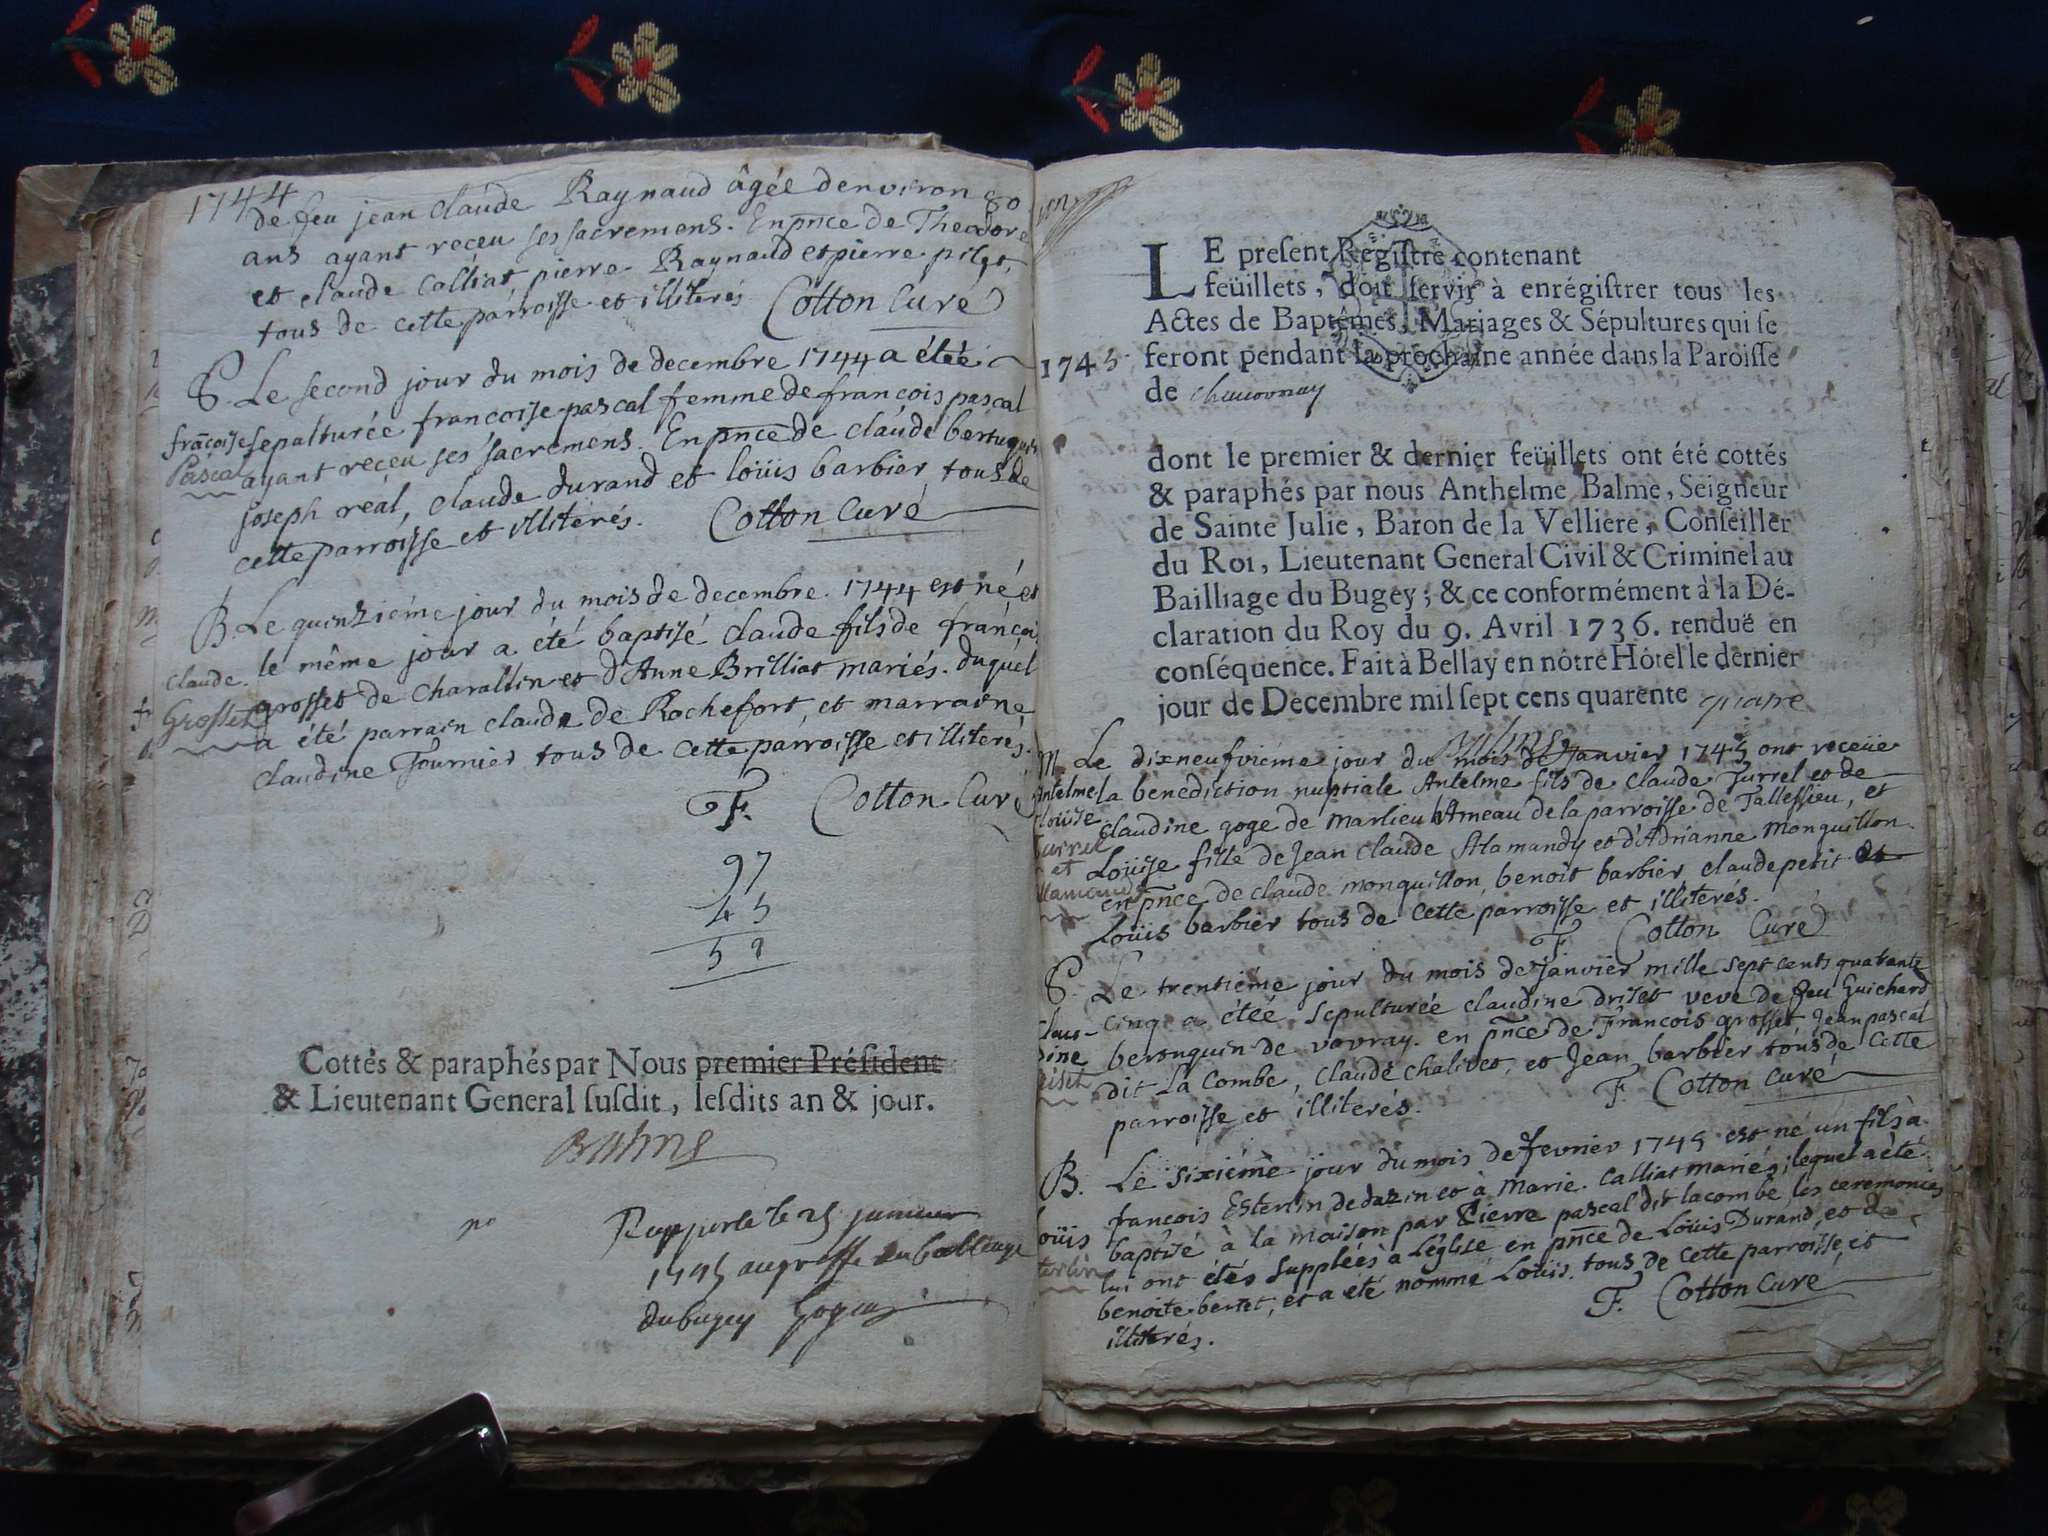 1744
de feu jean claude Raynaud âgée denviron 80
ans ayant receu ses sacremens. En pnce de Theodore
et claude Calliat, pierre Raynaud et pierre pilet,
tous de cette parroisse et illiterés Cotton Curé
S. Le second jour du mois de decembre 1744 a étée
françoise sepulturée francoise pascal femme de françois pascal
Pascal ayant reçeu ses sacremens. En pnce de claude
joseph réal, claude durand et loüis barbier, tous de
cette parroisse et illiterés. Cotton Curé
B. Le quinziéme jour du mois de decembre 1744 est né, et
claude. le même jour a été baptisé claude fils de françois
Grosset grosset de Charallin et d'Anne Brilliat mariés. duquel
a été parrain claude de Rochefort, et marraine
claudine Fournier tous de cette parroisse et illiterés.
F. Cotton Curé
97
45
Cottés & paraphés par Nous premier Président
& Lieutenant General susdit, lesdits an & jour.
Balme
Rapporté le 25 janvier
1745 au greffe du bailliage
du bugey
LE present Registre contenant
feüillets, doit servir à enrégistrer tous les
Actes de Baptêmes, Mariages & Sépultures qui se
1745 feront pendant la prochaine année dans la Paroisse
de
dont le premier & dernier feüillets ont été cottés
& paraphés par nous Anthelme Balme, Seigneur
de Sainte Julie, Baron de la Velliere, Conseiller
du Roi, Lieutenant General Civil & Criminel au
Bailliage du Bugey; & ce conformément à la Dé-
claration du Roy du 9. Avril 1736. renduë en
conséquence. Fait à Bellay en nôtre Hôtel le dernier
jour de Decembre mil sept cens quarente quatre
Balme
M. Le dixneufviéme jour du mois de Janvier 1745 ont receüe
Antelme la benediction nuptiale Antelme fils de claude Jurrel et de
Loüise claudine goge de marlieu hameau de la parroisse de Tallessieu, et
Jurrel Loüise fille de Jean Claude Alamandy et d'Adrianne monquillon
et en pnce de claude monquillon, benoit barbier, claude petit et
Loüis barbier tous de cette parroisse et illiterés.
F. Cotton Curé
S. Le trentiéme jour du mois de janvier mille sept cents quarante
clau- cinq a étée sepulturée claudine driset veve de feu Guichard
dine beronquin de vovray. en pnce de François grosset Jean pascal
dit La Combe, Claude Chalivet, et Jean barbier tous de cette
parroisse et illiterés. F. Cotton curé
B. Le sixiéme jour du mois de fevrier 1745 est né un fils à
françois Esterlin de dazin et à Marie Calliat mariés; lequel a été
Loüis baptisé à la maison par Pierre pascal dit lacombe, les ceremonies
terlin lui ont étés suppleés à L'église en pnce de Loüis Durand, et de
benoite bertet, et a été nommé Loüis. tous de cette parroisse, et
illiterés. F. Cotton Curé